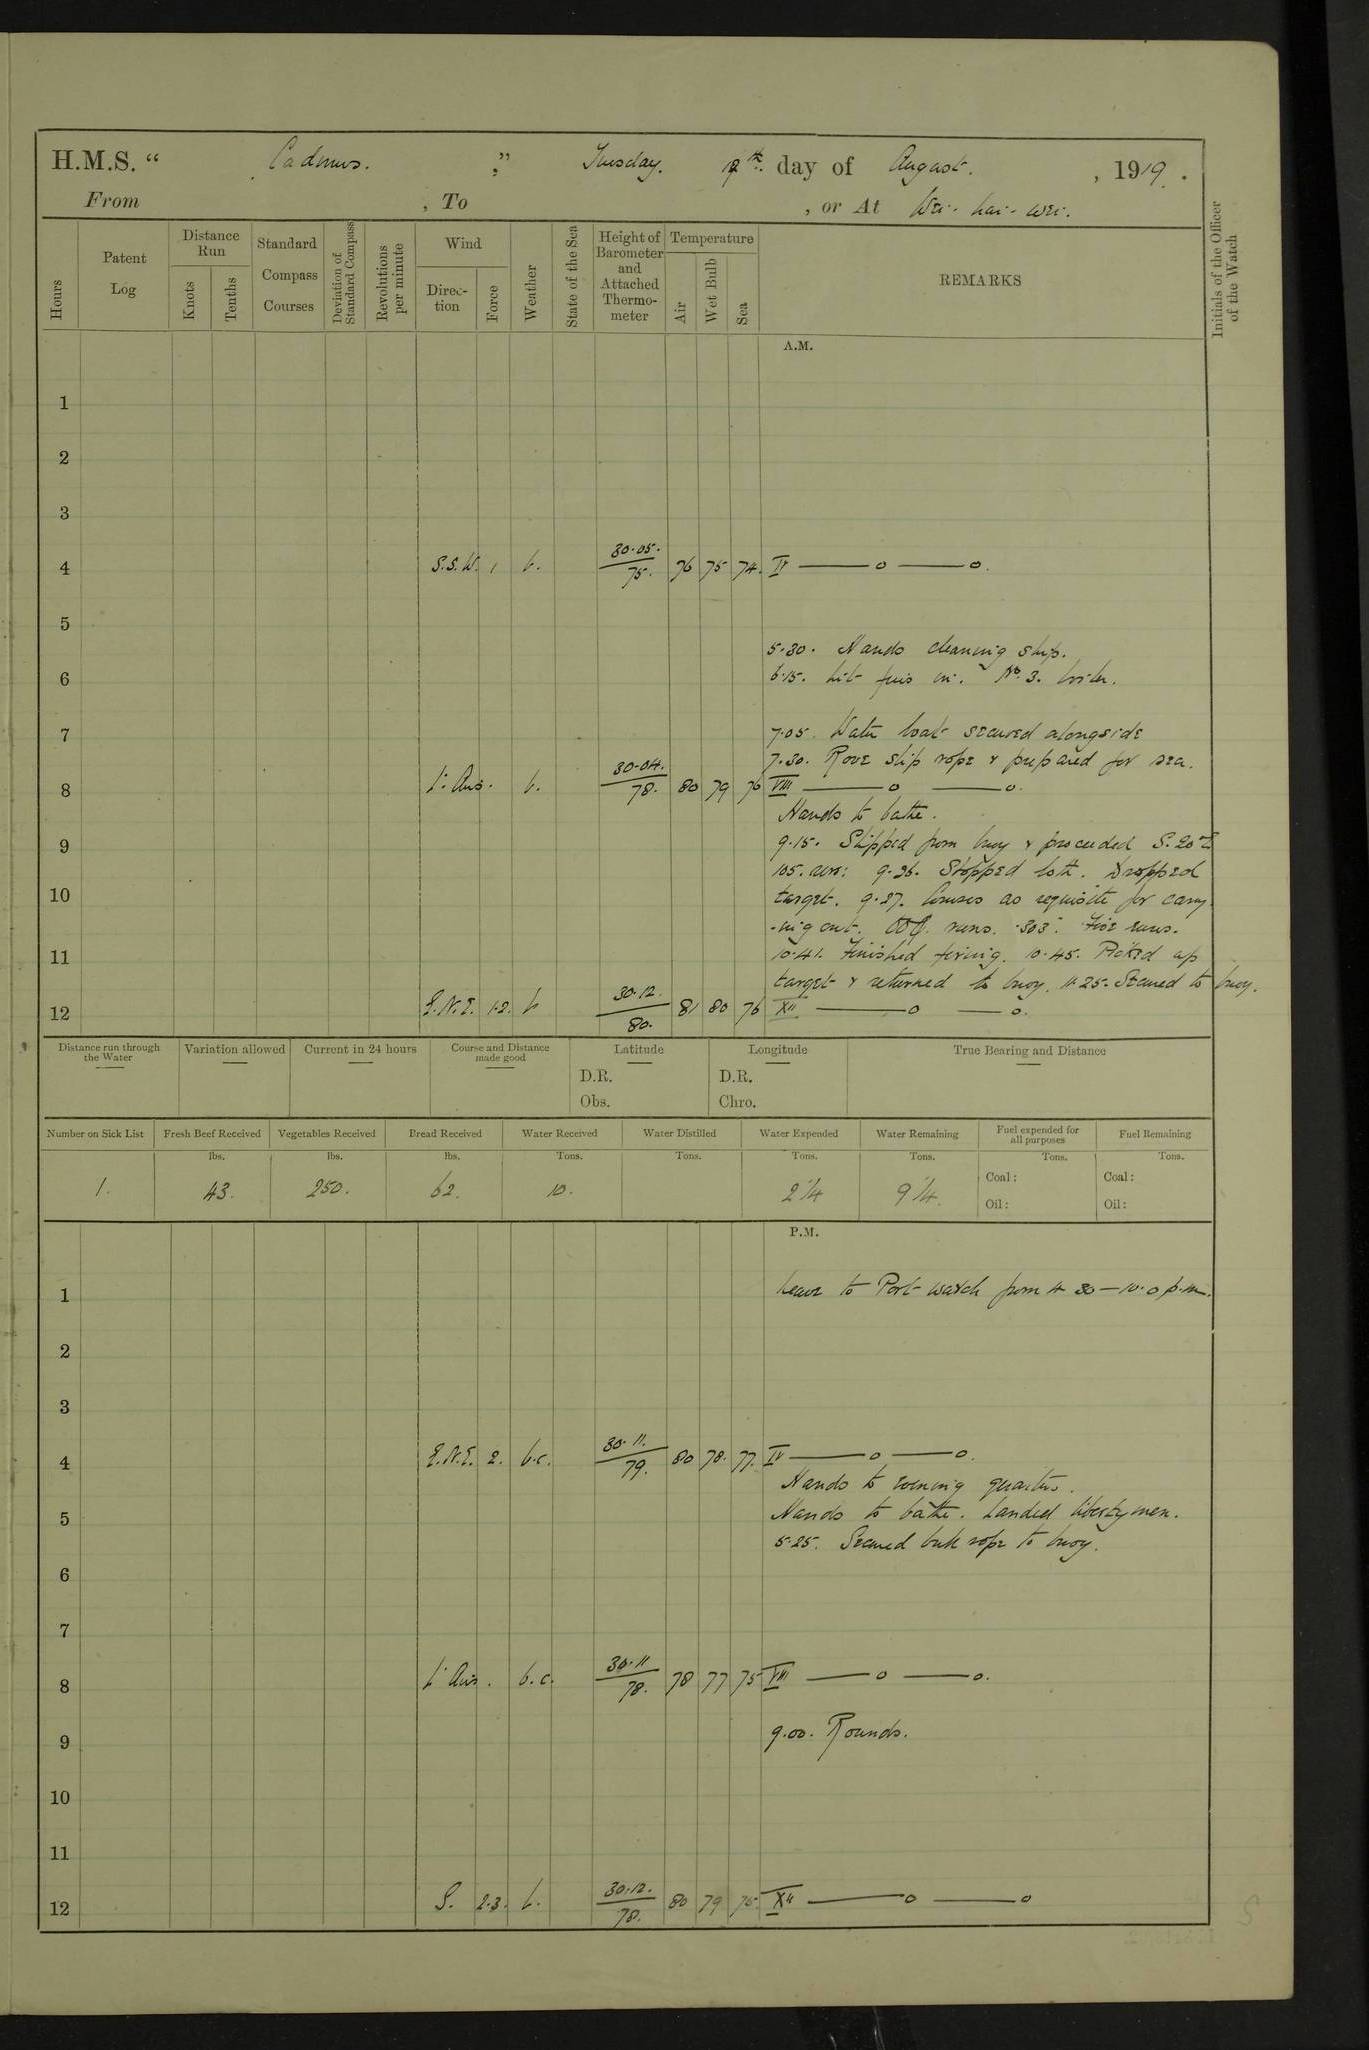 H.M.S. “ Cadmus. ,” Tuesday. 19th. day of August. , 1919 .
From , To , or At Wei-hai-wei.
Hours
Patent Log
Distance Run
Knots
Tenths
Standard Compass Courses
Deviation of Standard Compass
Revolutions per minute
Wind
Direc-tion
Force
Weather
State of the Sea
Height of Barometer and Attached Thermo-meter
Temperature
Air
Wet Bulb
Sea
REMARKS
Initials of the Officer of the Watch
A.M.
1
2
3
4 S.S.W. 1 b. 30.05. 75. 76 75 74. IV —— o —— o.
5
5.30. Hands cleaning ship.
6 6.15. Lit fires in. No. 3. boiler.
7 7.05. Water boat secured alongside
7.30. Rove slip rope & prepared for sea.
8 Lt. Airs. b. 30.04. 78. 80 79 76 VIII —— o —— o.
Hands to bathe.
9 9.15. Slipped from buoy & proceeded S. 20 E
105. revs: 9.26. Stopped both. Dropped
10 target. 9.27. Courses as requisite for carry
-ing out. runs. .303". Five runs.
11 10.41. Finished firing. 10.45. Picked up
target & returned to buoy. 11.25. Secured to buoy.
12 E.N.E. 1-2. b 30.12. 80. 81 80 76 XII —— o —— o.
Distance run through the Water
Variation allowed
Current in 24 hours
Course and Distance made good
Latitude
D.R.
Obs.
Longitude
D.R.
Chro.
True Bearing and Distance
Number on Sick List
Fresh Beef Received
Vegetables Received
Bread Received
Water Received
Water Distilled
Water Expended
Water Remaining
Fuel expended for all purposes
Fuel Remaining
lbs. lbs. lbs. Tons. Tons. Tons. Tons. Tons. Tons.
1. 43. 250. 62. 10. 2 1/4 9 1/4. Coal: Coal:
Oil: Oil:
P.M.
1 Leave to Port watch from 4.30 — 10.0 p.m.
2
3
4 E.N.E. 2. b.c. 30.11. 79. 80 78. 77. IV —— o —— o.
Hands to evening quarters.
5 Hands to bathe. Landed libertymen.
5.25. Secured bull rope to buoy.
6
7
8 Lt Airs. b.c. 30.11 78. 78 77 75 VIII —— o —— o.
9 9.00. Rounds.
10
11
12 S. 2.3. b. 30.12. 78. 80 79 75. XII —— o —— o